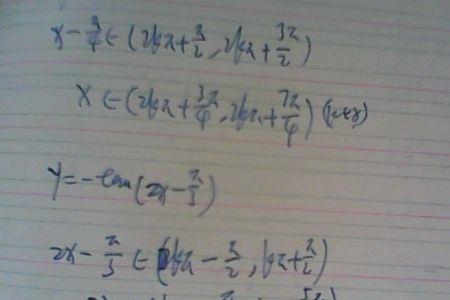 x-π/4∈(2kπ+π/2, 2kπ+3π/2)
x∈(2kπ+3π/4, 2kπ+7π/4)(k∈z)
y=-tan(2x-π/3)
2x-π/3∈(kπ-π/2, kπ+π/2)